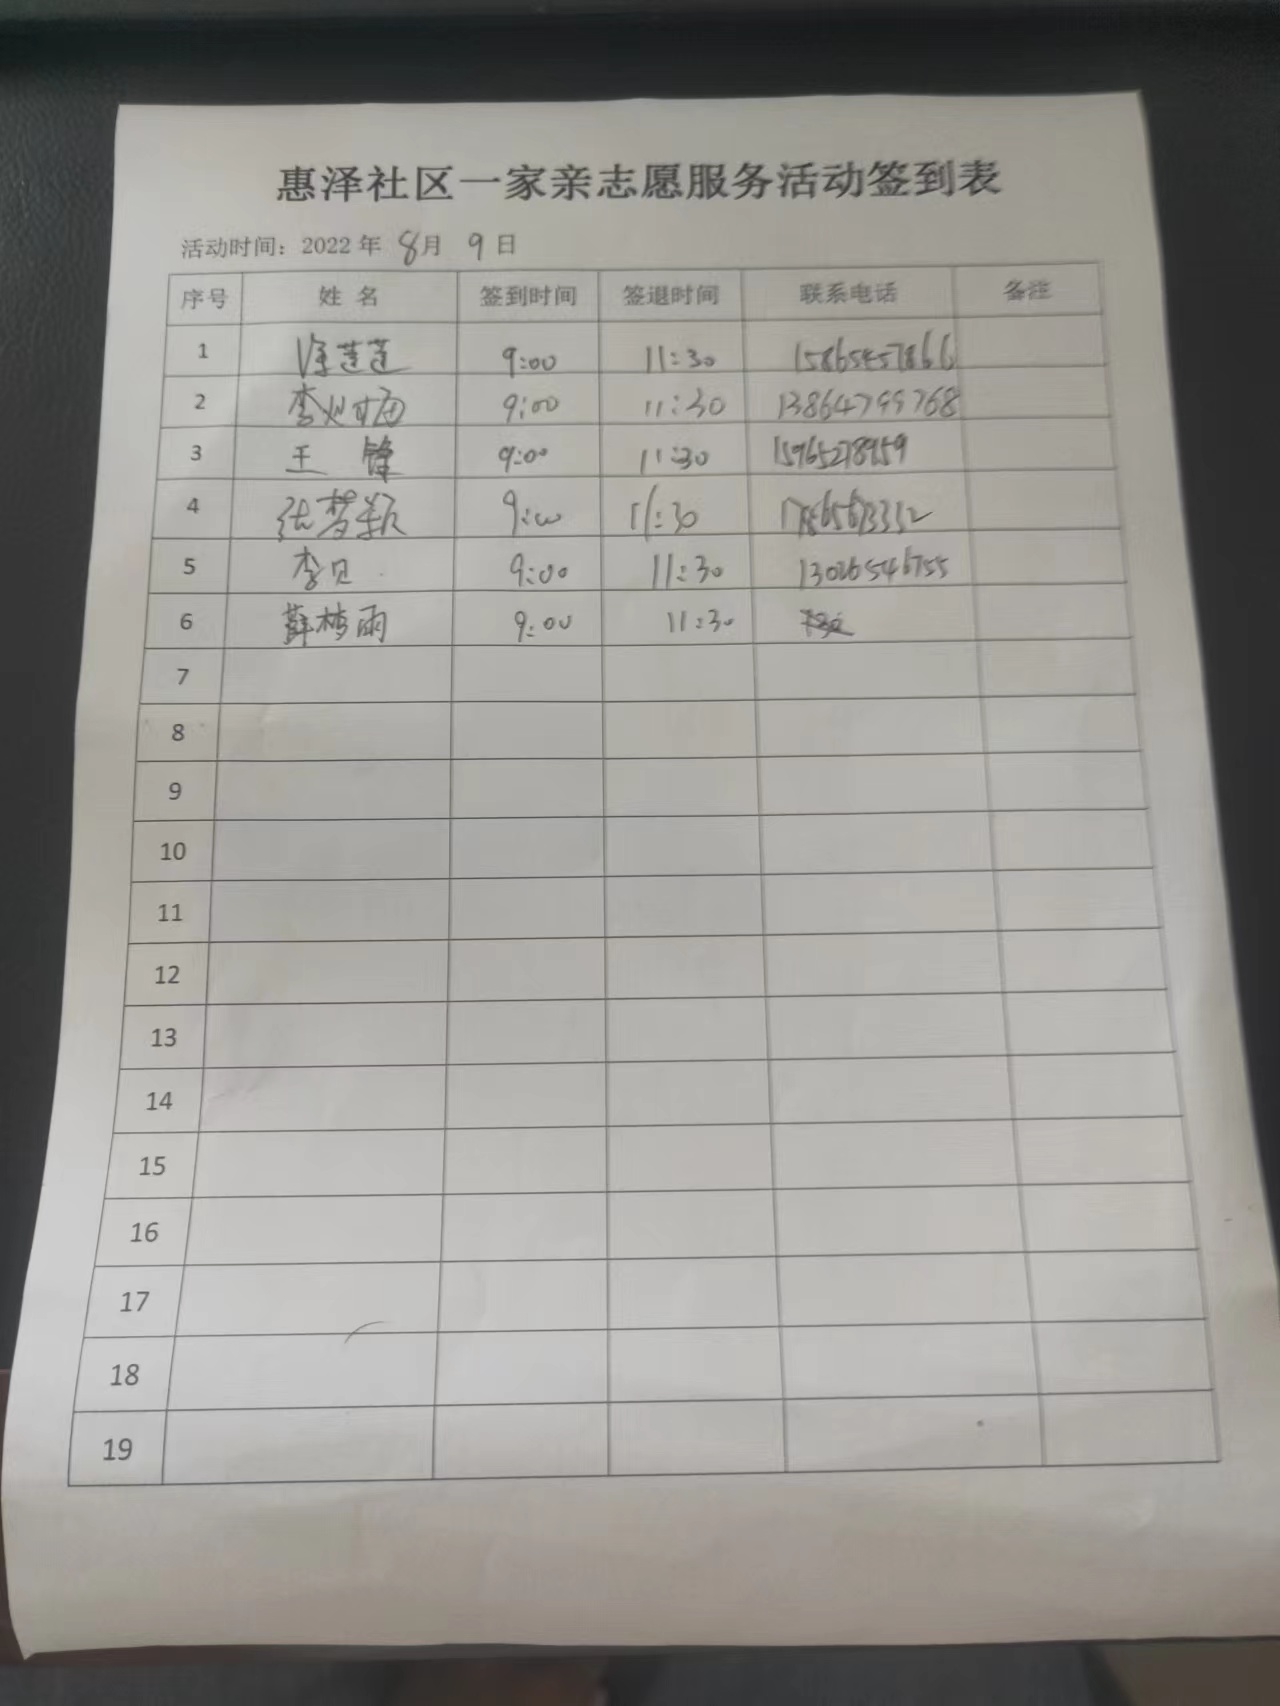 惠泽社区一家亲志愿服务活动签到表
活动时间：2022 年 8月 9日
序号 姓 名 签到时间 签退时间 联系电话 备注
1 徐莲莲 9:00 11:30 15865457866
2 李 9:00 11:30 13864799768
3 王 锋 9:00 11:30 15965278959
4 张梦颖 9:00 11:30
5 李贝 9:00 11:30 13026546755
6 薛梅雨 9:00 11:30
7
8
9
10
11
12
13
14
15
16
17
18
19